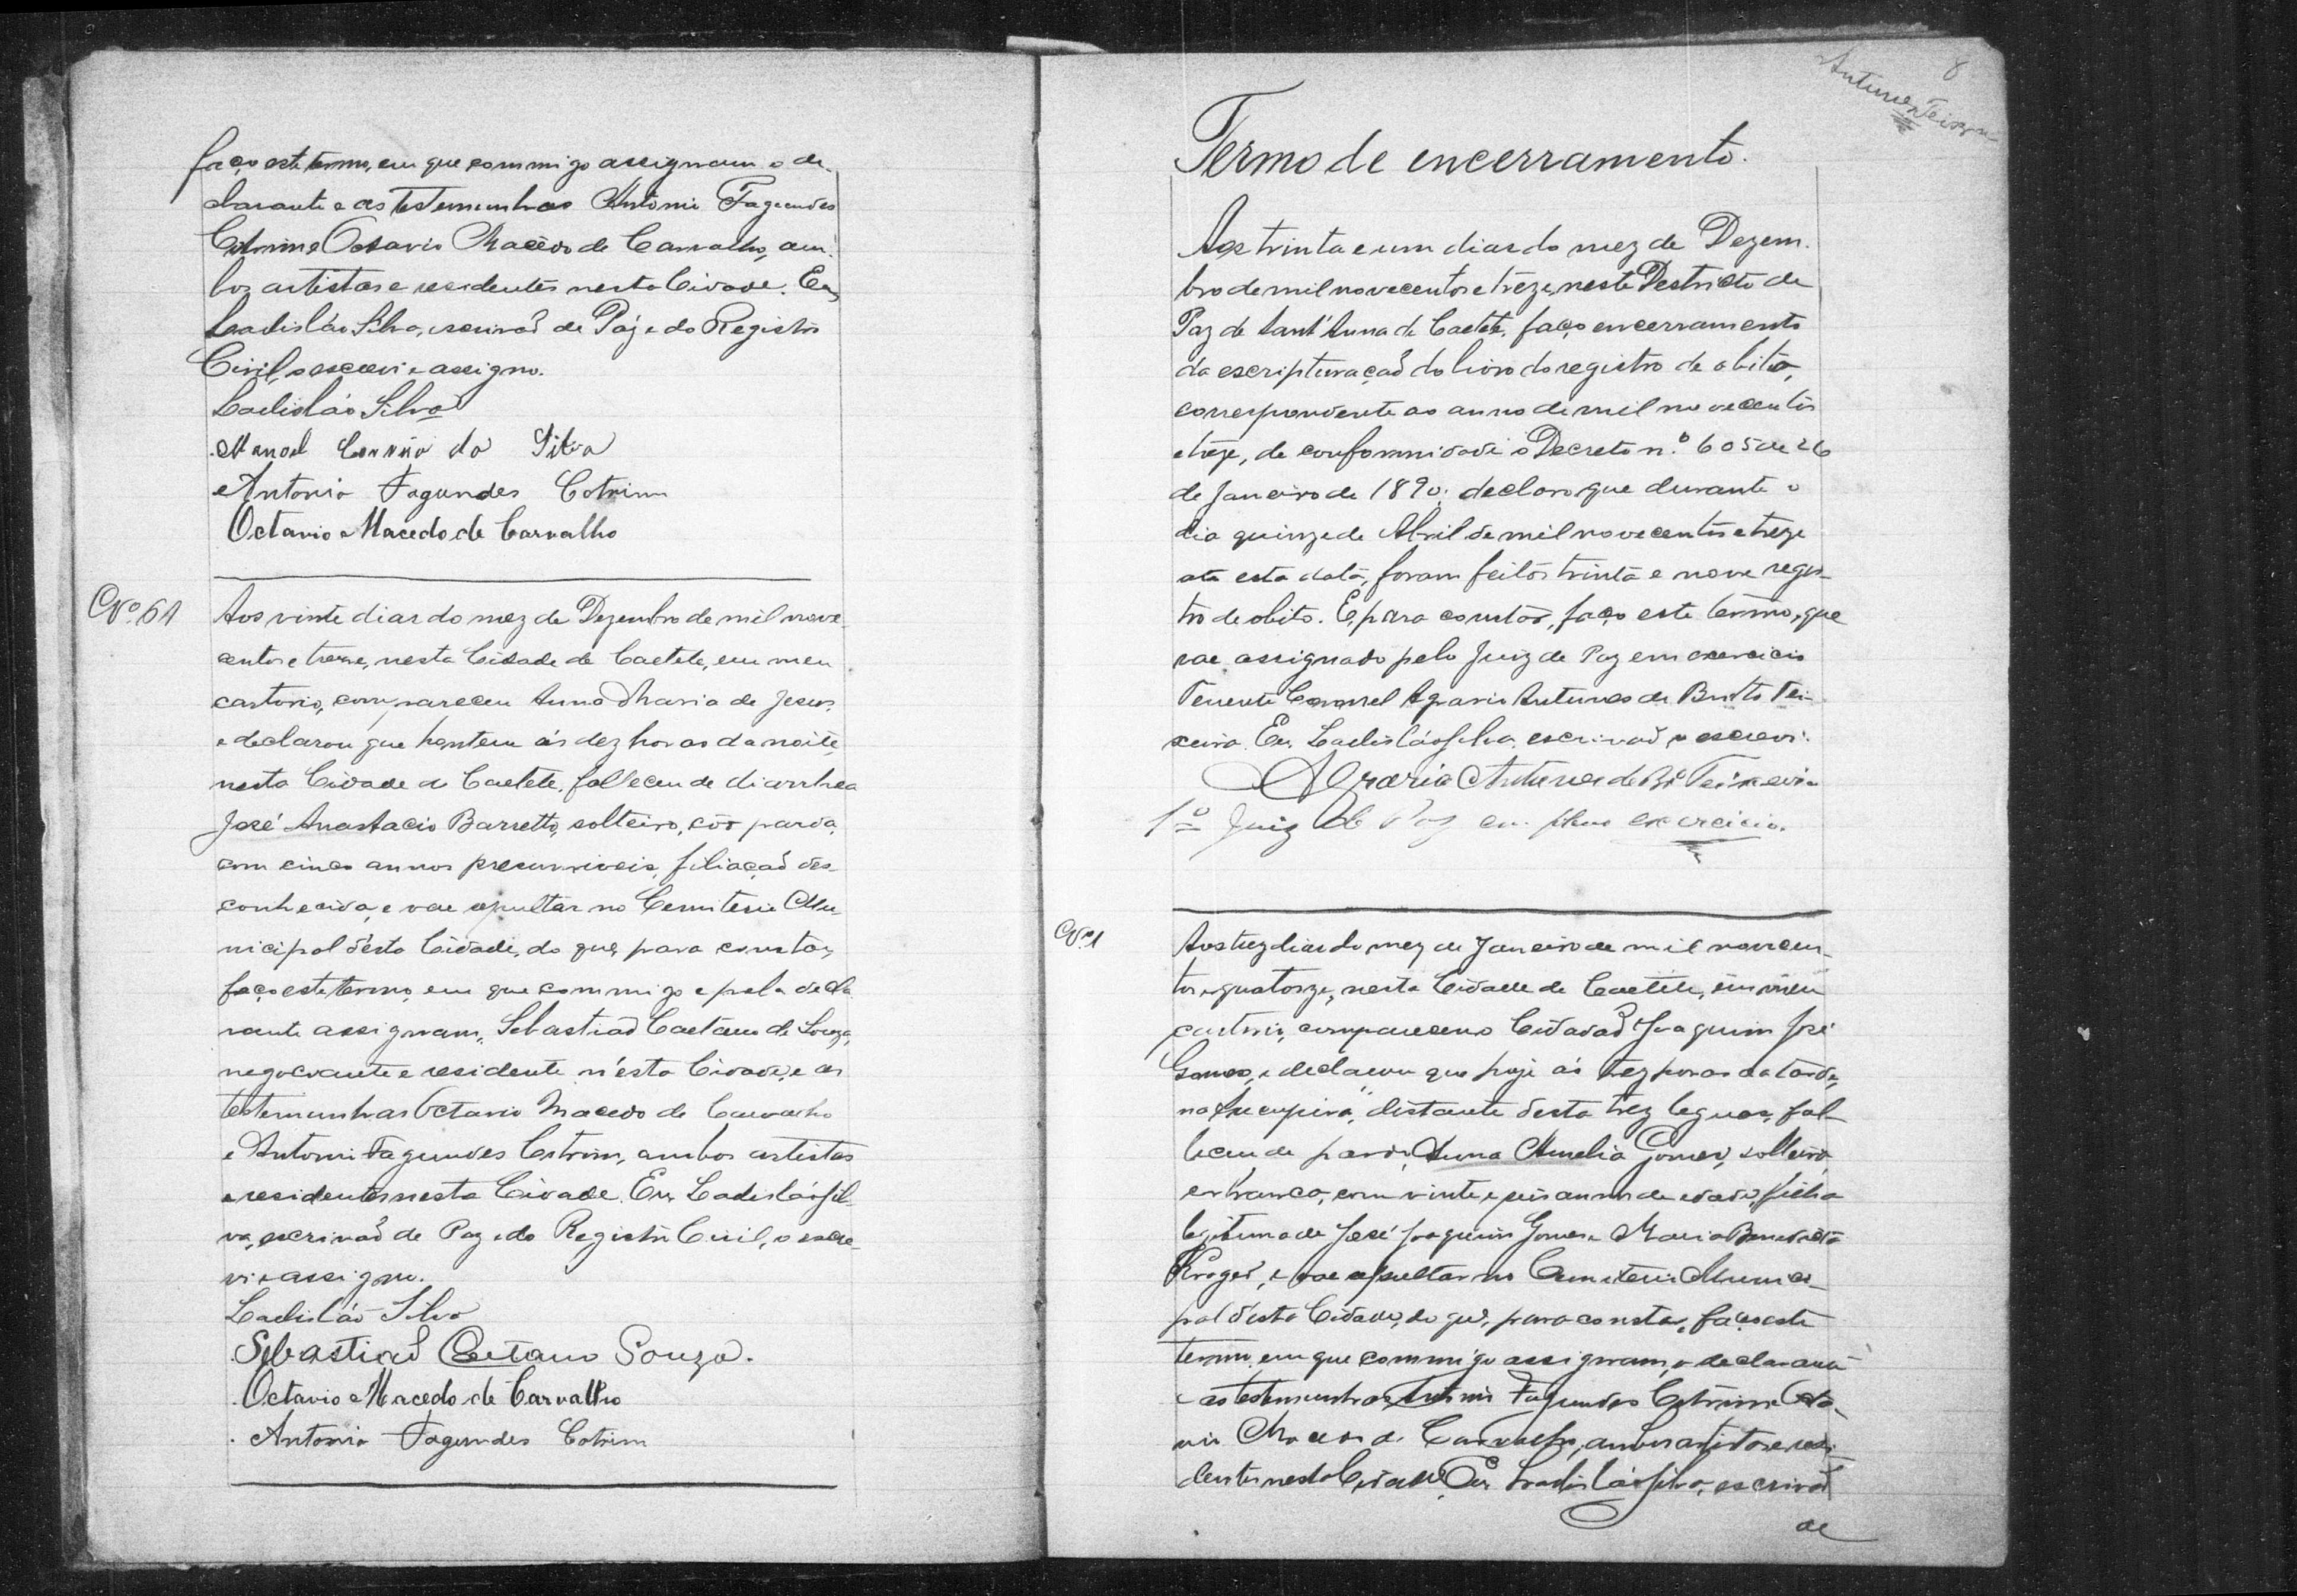 faço este termo, em que commigo assignam o de-
clarante e as testemunhas Antonio Fagundes
Cotrim e Octavio Macêdo de Carvalho, am-
bos artistas e residentes nesta Cidade. Eu,
Ladisláo Silva, escrivaõ de Páz e do Registro
Civil, o escrevi e assigno.
Ladisláo Silva
Manoel Corrêia da Silva
Antonio Fagundes Cotrim
Octavio Macedo de Carvalho
Nº 61
Aos vinte dias do mez de Dezembro de mil nove-
centos e treze, nesta Cidade de Caeteté, em meu
cartorio, compareceu Anna Maria de Jesus
e declarou que hontem ás dez horas da noite,
nesta Cidade de Caeteté, falleceu de diarrhea
José Anastacio Barretto, solteiro, côr parda,
com cinco annos presumiveis, filiaçaõ des-
conhecida, e vae sepultar no Cemiterio Mu-
nicipal d'ésta Cidade, do que, para constar,
faço este termo, em que commigo e pela decla-
rante assignam, Sebastiaõ Caetano de Souza,
negociante e residente n'ésta Cidade, e as
testemunhas Octavio Macedo de Carvalho
e Antonio Fagundes Cotrim, ambos artistas
e residentes nesta Cidade. Eu, Ladisláo Sil-
va, escrivaõ de Paz e do Registro Civil, o escre-
vi e assigno.
Ladisláo Silva
Sebastiaõ Caetano Souza.
Octavio Macedo de Carvalho
Antonio Fagundes Cotrim
8
Antunes Teixeira
Termo de encerramento.
Aos trinta e um dias do mez de Dezem-
bro de mil novecentos e treze, neste Destricto de
Paz de Sant'Anna de Caeteté, faço encerramento
da escripturaçaõ do livro do registro de obito,
correspondente ao anno de mil novecentos
e treze, de conformidade o Decreto n.º 605 de 26
de Janeiro de 1890; declaro que durante o
dia quinze de Abril de mil novecentos e treze
até esta data, foram feitos trinta e nove regis-
tro de obito. E, para constar, faço este termo, que
vae assignado pelo Juiz de Paz em exercicio
Tenente Coronel Agrario Antunes de Britto Tei-
xeira. Eu, Ladisláo Silva, escrivaõ o escrevi.
Agrario Antunes de Bº Teixeira
1º Juiz de Paz em pleno exercicio.
Nº 1
Aos trez dias do mez de Janeiro de mil novecen-
tos e quatorze, nesta Cidade de Caeteté, em meu
cartorio, compareceu o Cidadaõ Joaquim José
Gomes, e declarou que hoje ás trez horas da tarde,
na Sucupira, distante desta trez leguas, fal-
leceu de parto, Anna Amelia Gomes, solteira,
côr branca, com vinte e seis annos de edade, filha
legitima de José Joaquim Gomes e Maria Benedicta
e vae sepultar no Cemiterio Munici-
pal d'ésta Cidade, do que, para constar, faço este
termo, em que commigo assignam, o declarante
e as testemunhas Antonio Fagundes Cotrim e Octa-
vio Macedo de Carvalho, ambos artistas e resi-
dentes nesta Cidade. Eu, Ladisláo Silva, escrivaõ
de